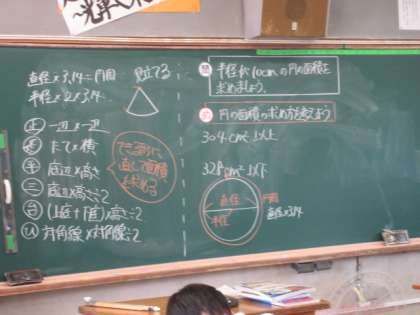 直径×3.14=円周 見立てる
半径×2×3.14
正 一辺×一辺
長 たて×横
平 底辺×高さ
三 底辺×高さ÷2
台 (上底+下底)×高さ÷2
ひ 対角線×対角線÷2
直して面積
を求める
半径が10cmの円の面積
を求めましょう。
円の面積の求め方を考えよう
304cm²以上
328cm²以下
直径
半径
円周
直径×3.14